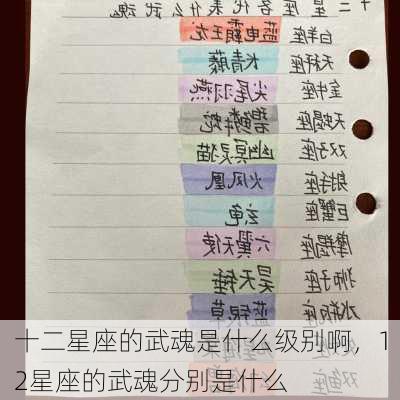 十二星座各代表什么武魂
白羊座 蓝电霸王龙
天秤座 长青藤
金牛座 尖尾羽燕
天蝎座 碧鳞蛇
双子座 幽冥灵猫
射手座 火凤凰
巨蟹座 玄龟
摩羯座 六翼天使
狮子座 昊天锤
水瓶座 蓝银草
双鱼座
十二星座的武魂是什么级别啊，1
2星座的武魂分别是什么